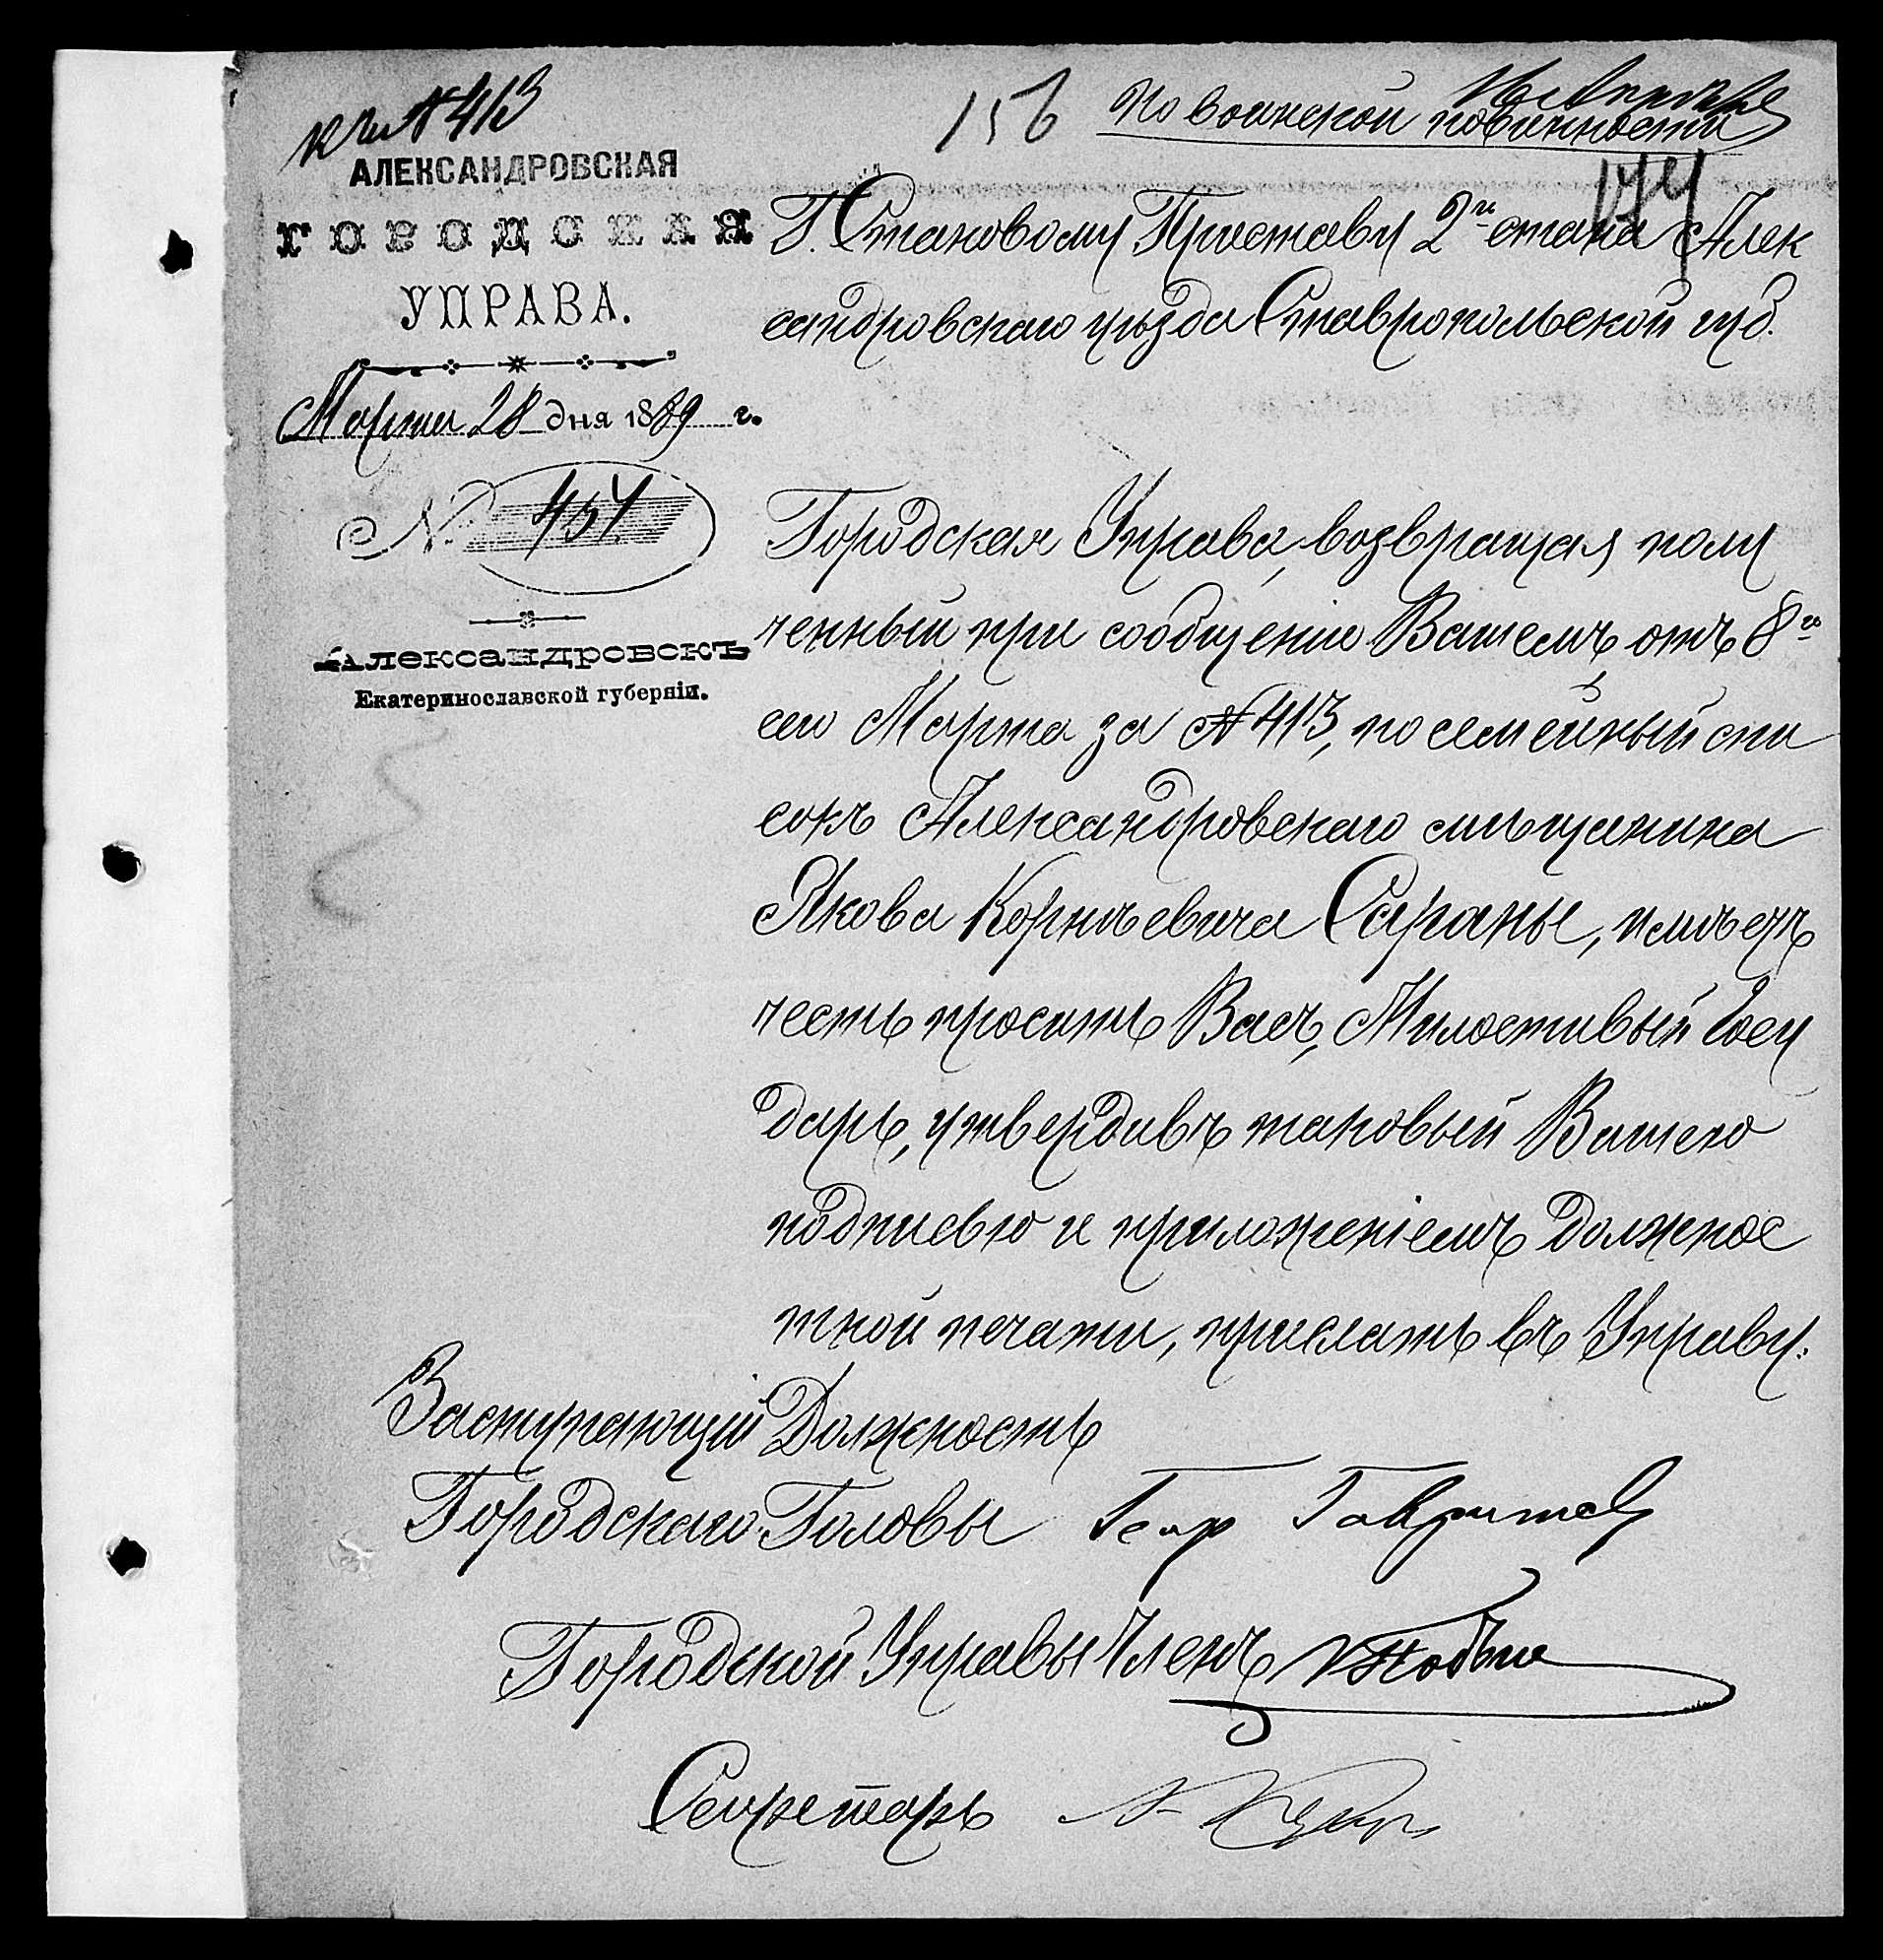 № 413
156
По воинской повинности
174
АЛЕКСАНДРОВСКАЯ
ГОРОДСКАЯ
УПРАВА.
Марта 28 дня 1889 г.
№ 454
Александровскъ
Екатеринославской губерніи.
Г. Становому Приставу 2го стана Алек
сандровскаго уѣзда Ставропольской губ.
Городская Управа, возвращая полу
ченный при сообщеніи Вашемъ отъ 8го
сего Марта за № 413, посемейный спи
сокъ Александровскаго мѣщанина
Якова Корнѣевича Сараны, имѣетъ
честь просить Васъ, Милостивый Госу
дарь, утвердивъ таковый Вашею
подписью и приложеніемъ должнос
тной печати, прислать въ Управу.
Заступающій Должность
Городскаго Головы
Городской Управы Членъ
Секретарь